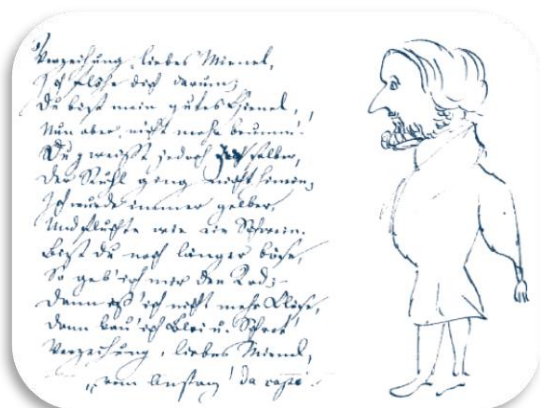 Verzeihung, liebes Mienel,
Ich flehe dich darum;
Du bist mein gutes
Nun aber nicht mehr brumm'!
Du weißt jedoch selber,
Der Stuhl ging nicht hinein;
Ich wurde immer gelber,
Und fluchte wie ein Schwein.
Bist du noch länger böse,
So geb' ich mir den Tod;
Dann eß' ich nicht mehr
Dann kau' ich Blei u. Schrot
Verzeihung, liebes Mienel,
vom Anfang! da capo!